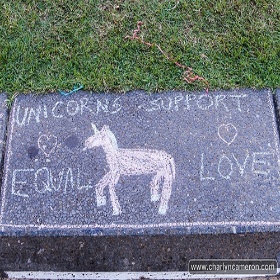 UNICORNS SUPPORT
EQUAL LOVE
www.charlyncameron.com